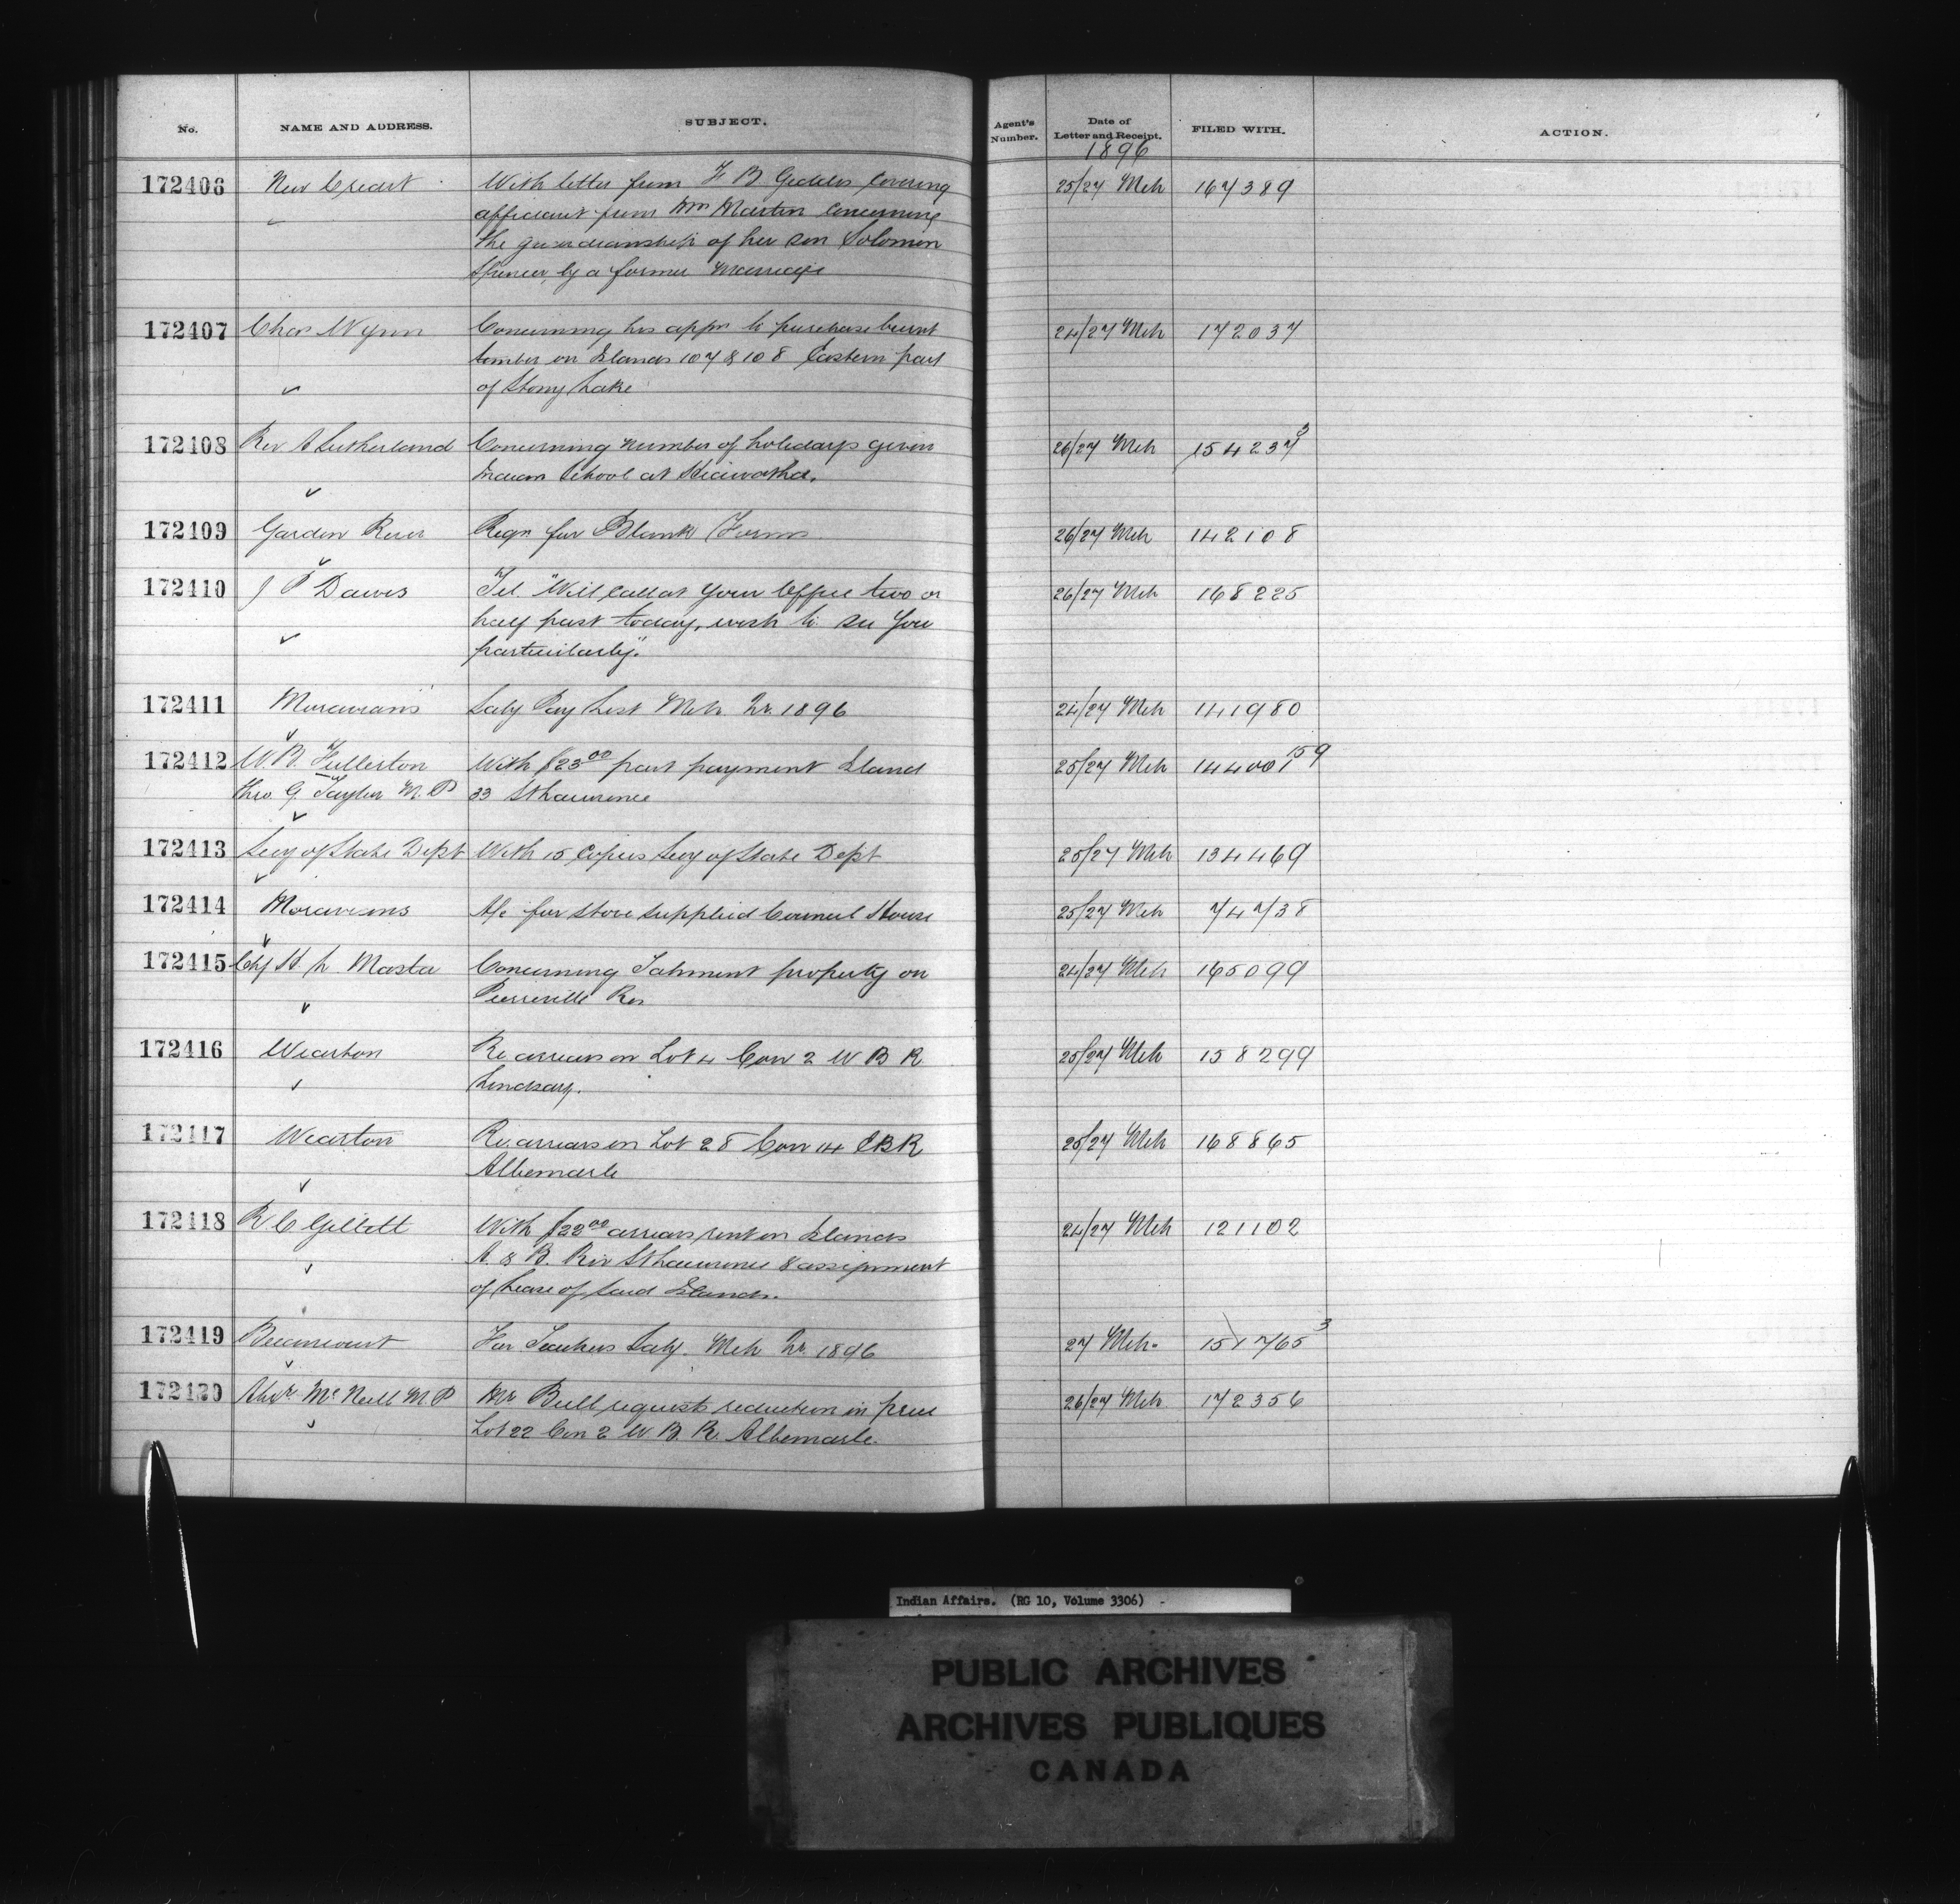 No.
NAME AND ADDRESS.
SUBJECT.
Agent's Number.
Date of Letter and Receipt.
FILED WITH.
ACTION.
1896
172406 New Credit With letter from F B Geddes Covering 25/27 Mch 167389
affidavit from Mrs Martin Concerning
the guardianship of her son Solomon
Spencer, by a former Marriage
172407 Chas Wynn Concerning his appn to purchase burnt 24/27 Mch 172037
timber on Islands 107 & 108 Eastern part
of Stony Lake
172408 Rev A Sutherland Concerning number of holidays given 26/27 Mch 154237 3
Indian School at Hiawatha.
172409 Garden River Reqn for Blank Forms 26/27 Mch 142108
172410 J P Dawes Tel. "Will call at your Office two or 26/27 Mch 168225
half past today, wish to see you
particularly."
172411 Moravians Saly Pay List Mch Qr. 1896 24/27 Mch 141980
172412 W. B. Fullerton With $23 00 part payment Island 25/27 Mch 144001 159
thro. G. Taylor M. P 33 St Lawrence
172413 Secy of State Dept With 15 Copies Secy of State Dept 25/27 Mch 134469
172414 Moravians A/c for stove supplied Council House 25/27 Mch 74738
172415 Chf H. L Masta Concerning Tahment property on 24/27 Mch 165099
Pierreville Res
172416 Wiarton Re arrears on Lot 4 Con 2 W B R 25/27 Mch 158299
Lindsay.
172417 Wiarton Re. arrears on Lot 28 Con 14 E B R 25/27 Mch 168865
Albemarle
172418 R. C Gillett With $22 00 arrears rent on Islands 24/27 Mch 121102
A. & B. Riv St Lawrence & assignment
of Lease of said Islands.
172419 Becancourt For Teachers Saly. Mch Qr. 1896 27 Mch. 151765 3
172420 Alexr. McNeill M. P Mr Bull requests reduction in price 26/27 Mch 172356
Lot 22 Con 2 W. B. R. Albemarle.
Indian Affairs. (RG 10, Volume 3306) -
PUBLIC ARCHIVES
ARCHIVES PUBLIQUES
CANADA